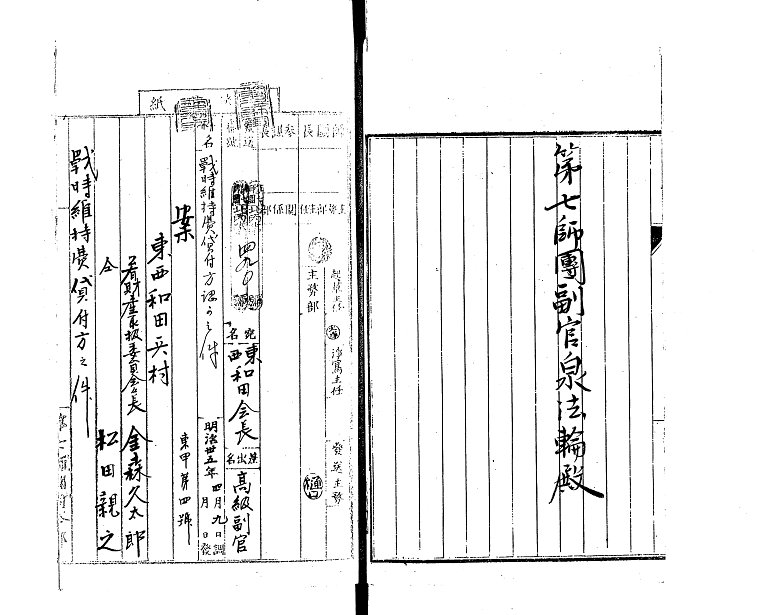 第七師團副官泉法輪殿
紙
師團長
參謀長
主務部主任
關係部
起案主任
淨寫主任
發送主務
主務部
樋口
四九〇
宛名
東西和田会長
差出名
高級副官
件名
戰時維持費貸付方認可之件
明治卅五年四月九日調
月 日發
東甲第四號
案
東西和田兵村
有財産取扱委員会長 金森久太郎
仝 松田親之
戰時維持費貸付方之件